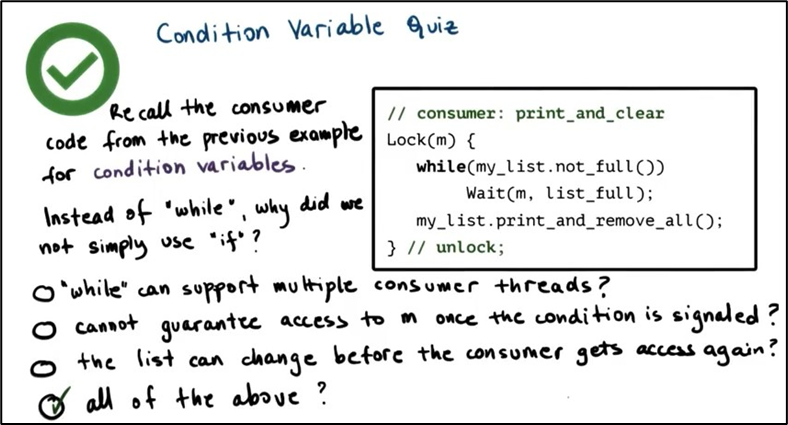 Condition Variable Quiz
Recall the consumer
code from the previous example
for condition variables.
Instead of "while", why did we
not simply use "if"?
// consumer: print_and_clear
Lock(m) {
while(my_list.not_full())
Wait(m, list_full);
my_list.print_and_remove_all();
} // unlock;
"while" can support multiple consumer threads?
cannot guarantee access to m once the condition is signaled?
the list can change before the consumer gets access again?
all of the above?